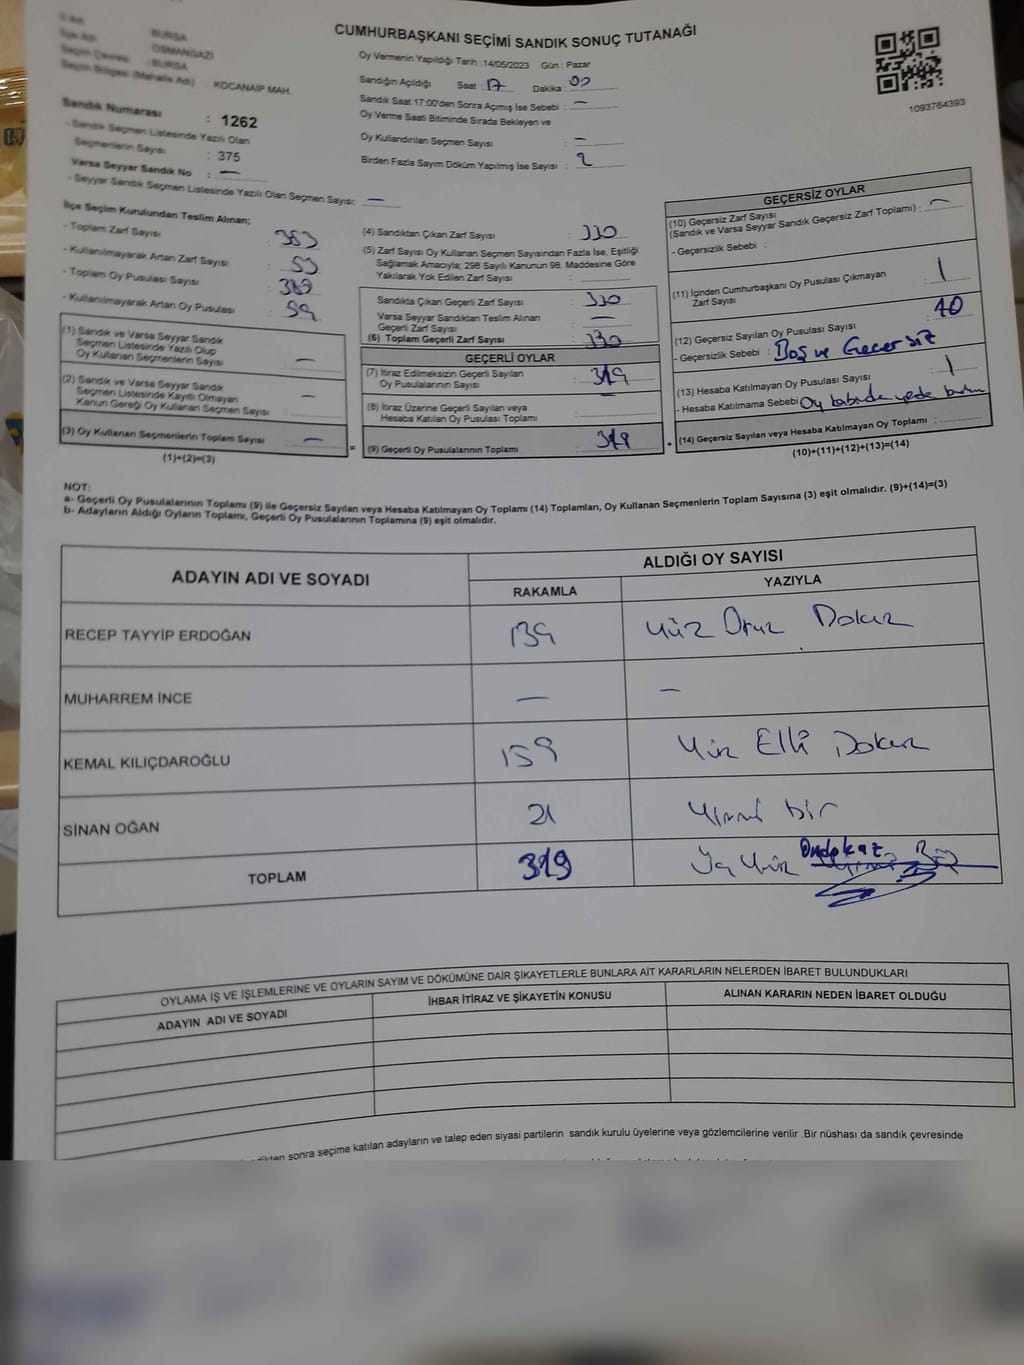 CUMHURBAŞKANI SEÇİMİ SANDIK SONUÇ TUTANAĞI
İlçe Adı : OSMANGAZİ
Seçim Çevresi : BURSA
Seçim Bölgesi (Mahalle Adı) : KOCANAİP MAH.
Sandık Numarası : 1262
- Sandık Seçmen Listesinde Yazılı Olan
Seçmenlerin Sayısı : 375
Varsa Seyyar Sandık No : —
- Seyyar Sandık Seçmen Listesinde Yazılı Olan Seçmen Sayısı: —
Oy Vermenin Yapıldığı Tarih :14/05/2023 Gün : Pazar
Sandığın Açıldığı Saat : 17 Dakika : 00
Sandık Saat 17:00'den Sonra Açımış İse Sebebi : —
Oy Verme Saati Bitiminde Sırada Bekleyen ve
Oy Kullandırılan Seçmen Sayısı : —
Birden Fazla Sayım Döküm Yapılmış İse Sayısı : 2
1093764393
İlçe Seçim Kurulundan Teslim Alınan;
- Toplam Zarf Sayısı : 383
- Kullanılmayarak Artan Zarf Sayısı : 53
- Toplam Oy Pusulası Sayısı : 389
- Kullanılmayarak Artan Oy Pusulası : 59
(1) Sandık ve Varsa Seyyar Sandık
Seçmen Listesinde Yazılı Olup
Oy Kullanan Seçmenlerin Sayısı : —
(2) Sandık ve Varsa Seyyar Sandık
Seçmen Listesinde Kayıtlı Olmayan
Kanun Gereği Oy Kullanan Seçmen Sayısı : —
(3) Oy Kullanan Seçmenlerin Toplam Sayısı : —
(1)+(2)=(3)
(4) Sandıktan Çıkan Zarf Sayısı : 330
(5) Zarf Sayısı Oy Kullanan Seçmen Sayısından Fazla İse, Eşitliği
Sağlamak Amacıyla; 298 Sayılı Kanunun 98. Maddesine Göre
Yakılarak Yok Edilen Zarf Sayısı :
Sandıkta Çıkan Geçerli Zarf Sayısı : 330
Varsa Seyyar Sandıktan Teslim Alınan
Geçerli Zarf Sayısı : —
(6) Toplam Geçerli Zarf Sayısı : 330
GEÇERLİ OYLAR
(7) İtiraz Edilmeksizin Geçerli Sayılan
Oy Pusulalarının Sayısı : 319
(8) İtiraz Üzerine Geçerli Sayılan veya
Hesaba Katılan Oy Pusulası Toplamı :
= (9) Geçerli Oy Pusulalarının Toplamı : 319 +
GEÇERSİZ OYLAR
(10) Geçersiz Zarf Sayısı
(Sandık ve Varsa Seyyar Sandık Geçersiz Zarf Toplamı) : —
- Geçersizlik Sebebi :
(11) İçinden Cumhurbaşkanı Oy Pusulası Çıkmayan
Zarf Sayısı : 1
(12) Geçersiz Sayılan Oy Pusulası Sayısı : 10
- Geçersizlik Sebebi : Boş ve Geçersiz
(13) Hesaba Katılmayan Oy Pusulası Sayısı : 1
- Hesaba Katılmama Sebebi : Oy
(14) Geçersiz Sayılan veya Hesaba Katılmayan Oy Toplamı :
(10)+(11)+(12)+(13)=(14)
NOT:
a- Geçerli Oy Pusulalarının Toplamı (9) ile Geçersiz Sayılan veya Hesaba Katılmayan Oy Toplamı (14) Toplamları, Oy Kullanan Seçmenlerin Toplam Sayısına (3) eşit olmalıdır. (9)+(14)=(3)
b- Adayların Aldığı Oyların Toplamı, Geçerli Oy Pusulalarının Toplamına (9) eşit olmalıdır.
ADAYIN ADI VE SOYADI
ALDIĞI OY SAYISI
RAKAMLA YAZIYLA
RECEP TAYYİP ERDOĞAN 139 Yüz Otuz Dokuz
MUHARREM İNCE — —
KEMAL KILIÇDAROĞLU 159 Yüz Elli Dokuz
SİNAN OĞAN 21 Yirmi bir
TOPLAM 319 Üç Yüz Ondokuz
OYLAMA İŞ VE İŞLEMLERİNE VE OYLARIN SAYIM VE DÖKÜMÜNE DAİR ŞİKAYETLERLE BUNLARA AİT KARARLARIN NELERDEN İBARET BULUNDUKLARI
ADAYIN ADI VE SOYADI İHBAR İTİRAZ VE ŞİKAYETİN KONUSU ALINAN KARARIN NEDEN İBARET OLDUĞU
sonra seçime katılan adayların ve talep eden siyasi partilerin sandık kurulu üyelerine veya gözlemcilerine verilir .Bir nüshası da sandık çevresinde